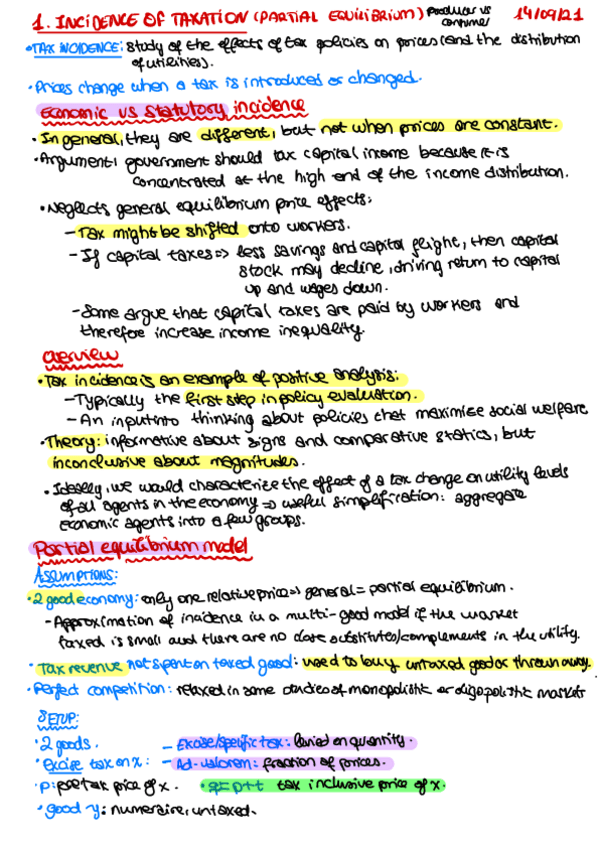 1. INCIDENCE OF TAXATION (PARTIAL EQUILIBRIUM) Producer vs consumer 14/09/21
• TAX INCIDENCE: study of the effects of tax policies on prices (and the distribution
of utilities).
• Prices change when a tax is introduced or changed.
Economic vs statutory incidence
• In general, they are different, but not when prices are constant.
• Argument: government should tax capital income because it is
concentrated at the high end of the income distribution.
• Neglects general equilibrium price effects:
- Tax might be shifted onto workers.
- If capital taxes => less savings and capital flight, then capital
stock may decline, driving return to capital
up and wages down.
- Some argue that capital taxes are paid by workers and
therefore increase income inequality.
Overview
• Tax incidence is an example of positive analysis:
- Typically the first step in policy evaluation.
- An input into thinking about policies that maximise social welfare
• Theory: informative about signs and comparative statics, but
inconclusive about magnitudes.
• Ideally, we would characterize the effect of a tax change on utility levels
of all agents in the economy => useful simplification: aggregate
economic agents into a few groups.
Partial equilibrium model
ASSUMPTIONS:
• 2 good economy: only one relative price => general = partial equilibrium.
- Approximation of incidence in a multi-good model if the market
taxed is small and there are no close substitutes/complements in the utility.
• Tax revenue not spent on taxed good: used to buy untaxed good or thrown away.
• Perfect competition: relaxed in some studies of monopolistic or oligopolistic markets
SETUP:
• 2 goods. - Excise/specific tax: levied on quantity.
• Excise tax on x: - Ad-valorem: fraction of prices.
• p: pretax price of x. • q = p+t tax inclusive price of x.
• good y: numeraire, untaxed.